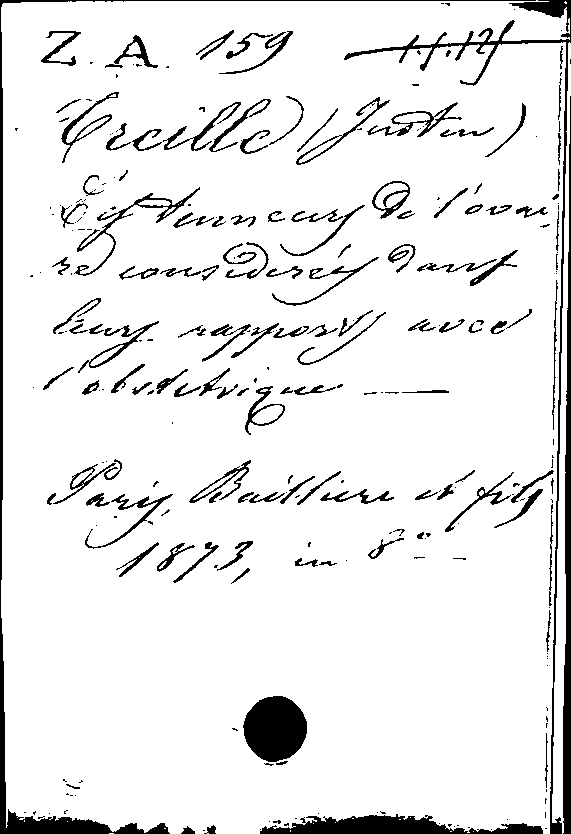 Z. A. 159 1.S.125
Treille (Justin)
Des tumeurs de l'ovai-
re considérées dans
leurs rapports avec
l'obstétrique —
Paris, Baillière et fils
1873, in 8°